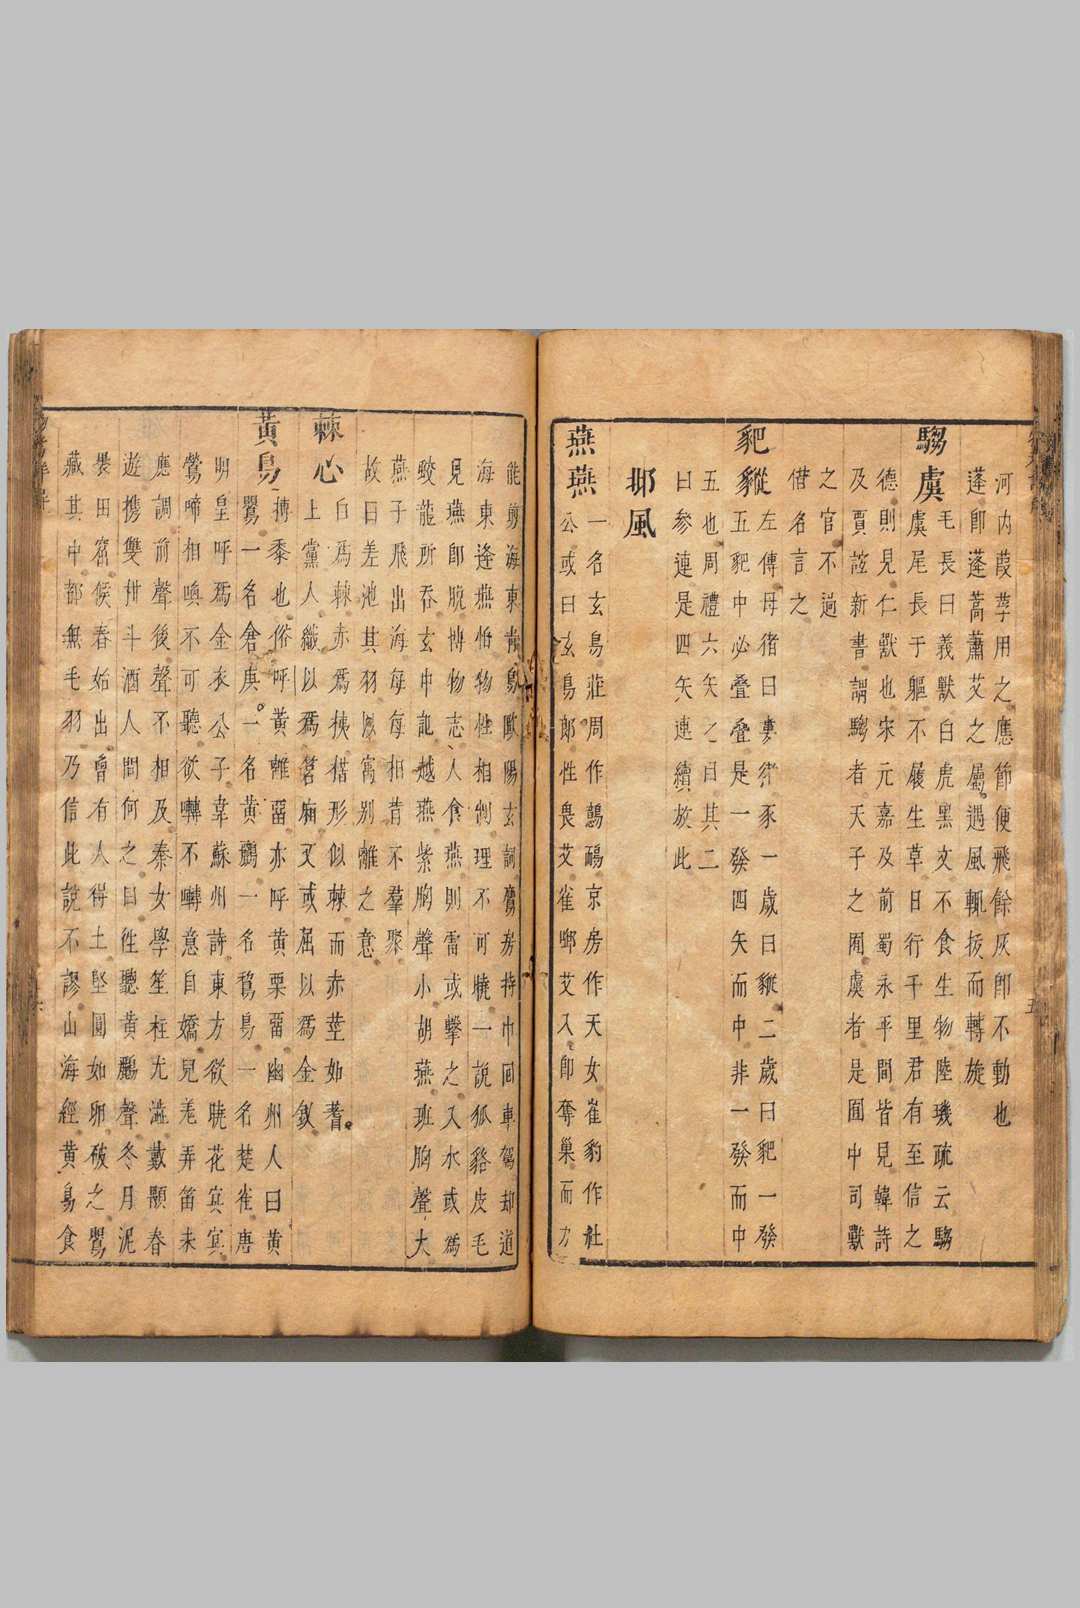 河内葭莩用之應節便飛餘灰即不動也
蓬即蓬蒿蕭艾之屬遇風輒拔而轉旋
騶虞
毛長曰義獸白虎黑文不食生物陸璣疏云騶
虞尾長于軀不履生草日行千里君有至信之
德則見仁獸也宋元嘉及前蜀永平間皆見韓詩
及賈誼新書謂騶者天子之囿虞者是囿中司獸
之官不過
借名言之
豝豵
左傳母猪曰婁豬豕一歲曰豵二歲曰豝一發
五豝中必叠叠是一發四矢而中非一發而中
五也周禮六矢之目其二
曰參連是四矢連續故此
邶風
燕燕
一名玄鳥莊周作鷾鴯京房作天女崔豹作社
公或曰玄鳥郎性畏艾雀啣艾入即奪巢而力
能剪海東青鳥歐陽玄詞鷹房持巾回車駕却道
海東逢燕怕物性相制理不可曉一說狐貉皮毛
見燕即脫博物志人食燕則雷或擊之入水或爲
蛟龍所吞玄中記越燕紫胸聲小胡燕班胸聲大
燕子飛出海每每相背不羣聚
故曰差池其羽以寓别離之意
棘心
白爲棘赤爲楰楛形似棘而赤莖如蓍
上黨人織以爲筥廂又或屈以爲金釵
黃鳥
摶黍也俗呼黃離畱亦呼黃栗畱幽州人曰黃
鸎一名倉庚一名黃鸝一名鵹鳥一名楚雀唐
明皇呼爲金衣公子韋蘇州詩東方欲曉花冥冥
鶯啼相喚不可聽欲囀不囀意自嬌兒羌弄笛未
應調前聲後聲不相及秦女學笙柱尤澁戴顒春
遊携雙柑斗酒人問何之曰徃聽黃鸝聲冬月泥
裹田窩候春始出曾有人得土堅圓如卵破之鸎
藏其中都無毛羽乃信此說不謬山海經黃鳥食